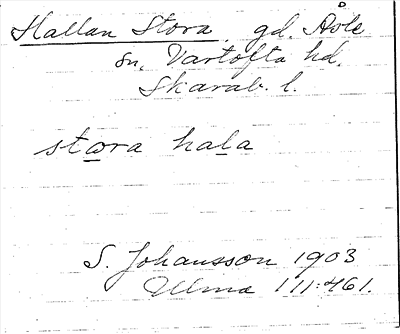 Hallan Stora, gd. Åsle
sn, Vartofta hd.
Skarab. l.
stora hala
S. Johansson 1903
Ulma 111:461.